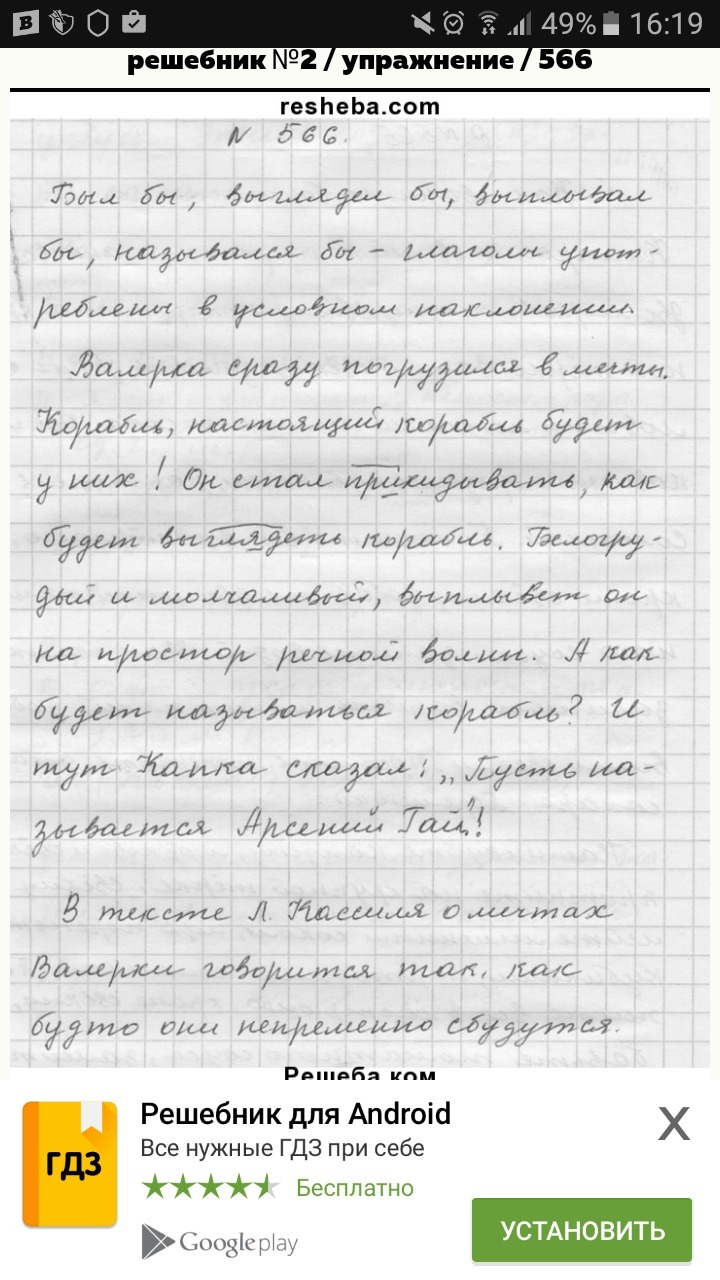 49% 16:19
решебник №2 / упражнение / 566
resheba.com
N 566.
Был бы, выглядел бы, выплывал
бы, назывался бы – глаголы упот-
реблены в условном наклонении.
Валерка сразу погрузился в мечты.
Корабль, настоящий корабль будет
у них! Он стал прикидывать, как
будет выглядеть корабль. Белогру-
дый и молчаливый, выплывет он
на простор речной волны. А как
будет называться корабль? И
тут Капка сказал: „Пусть на-
зывается Арсений Гай"!
В тексте Л. Кассиля о мечтах
Валерки говорится так, как
будто они непременно сбудутся.
Решеба.ком
ГДЗ
Решебник для Android
Все нужные ГДЗ при себе
Бесплатно
X
Google play
УСТАНОВИТЬ